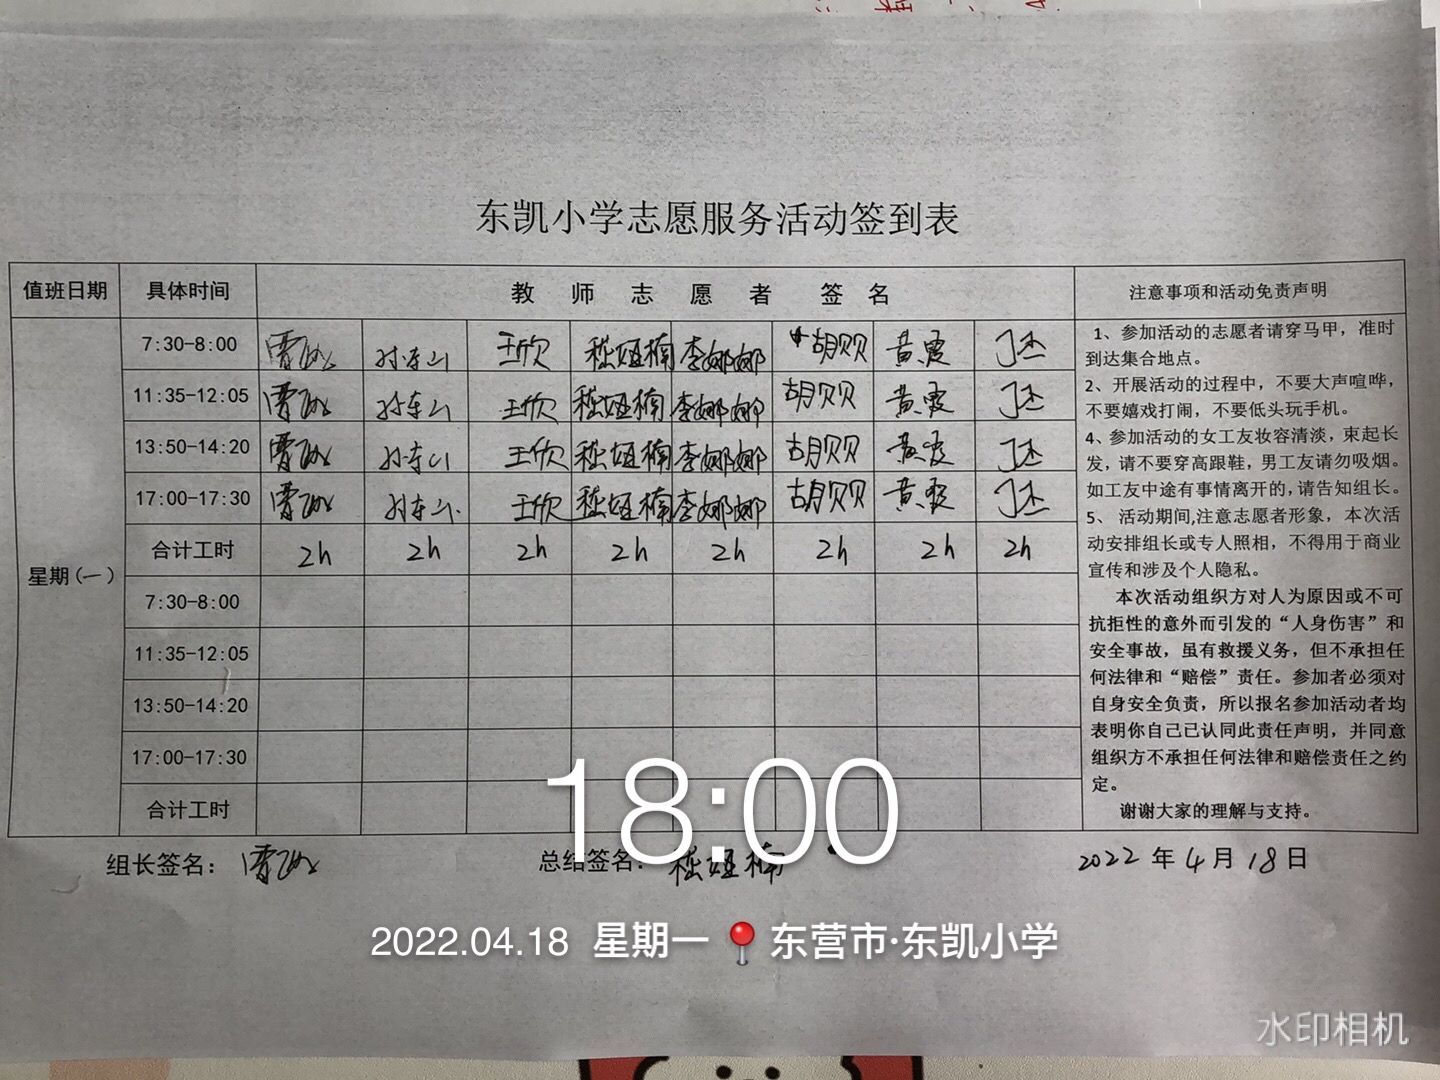 东凯小学志愿服务活动签到表
值班日期 具体时间 教师志愿者 签名 注意事项和活动免责声明
星期(一)
7:30-8:00 王欣 李娜娜 胡贝贝 黄霞
11:35-12:05 王欣 李娜娜 胡贝贝 黄霞
13:50-14:20 王欣 李娜娜 胡贝贝 黄霞
17:00-17:30 王欣 李娜娜 胡贝贝 黄霞
合计工时 2h 2h 2h 2h 2h 2h 2h 2h
7:30-8:00
11:35-12:05
13:50-14:20
17:00-17:30
合计工时
1、参加活动的志愿者请穿马甲，准时
到达集合地点。
2、开展活动的过程中，不要大声喧哗，
不要嬉戏打闹，不要低头玩手机。
4、参加活动的女工友妆容清淡，束起长
发，请不要穿高跟鞋，男工友请勿吸烟。
如工友中途有事情离开的,请告知组长。
5、 活动期间,注意志愿者形象，本次活
动安排组长或专人照相，不得用于商业
宣传和涉及个人隐私。
本次活动组织方对人为原因或不可
抗拒性的意外而引发的“人身伤害”和
安全事故，虽有救援义务，但不承担任
何法律和“赔偿”责任。参加者必须对
自身安全负责，所以报名参加活动者均
表明你自己已认同此责任声明，并同意
组织方不承担任何法律和赔偿责任之约
定。
谢谢大家的理解与支持。
组长签名： 总结签名： 2022 年 4 月 18 日
18:00
2022.04.18 星期一 东营市·东凯小学
水印相机